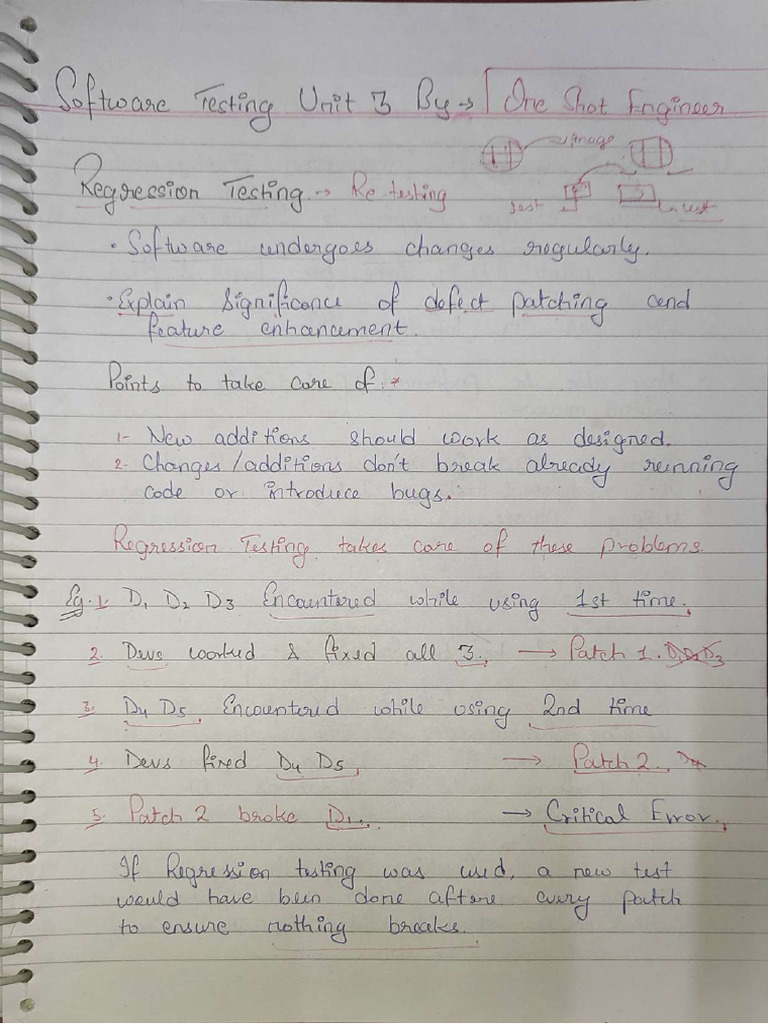 Software Testing Unit 3 By → One Shot Engineer
Regression Testing → Re testing
test
• Software undergoes changes regularly.
• Explain Significance of defect patching and
feature enhancement.
Points to take care of :
1- New additions should work as designed.
2- Changes/additions don't break already running
code or introduce bugs.
Regression Testing takes care of these problems
Eg. 1. D1 D2 D3 Encountered while using 1st time.
2. Devs worked & fixed all 3. → Patch 1. D1 D2 D3
3. D4 D5 Encountered while using 2nd time
4. Devs fixed D4 D5. → Patch 2. D4
5. Patch 2 broke D1. → Critical Error.
If Regression testing was used, a new test
would have been done after every patch
to ensure nothing breaks.